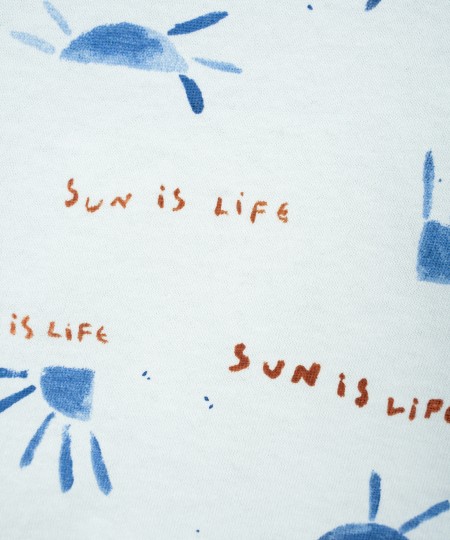 SUN iS LiFE
iS LiFE
SUN iS LiFE